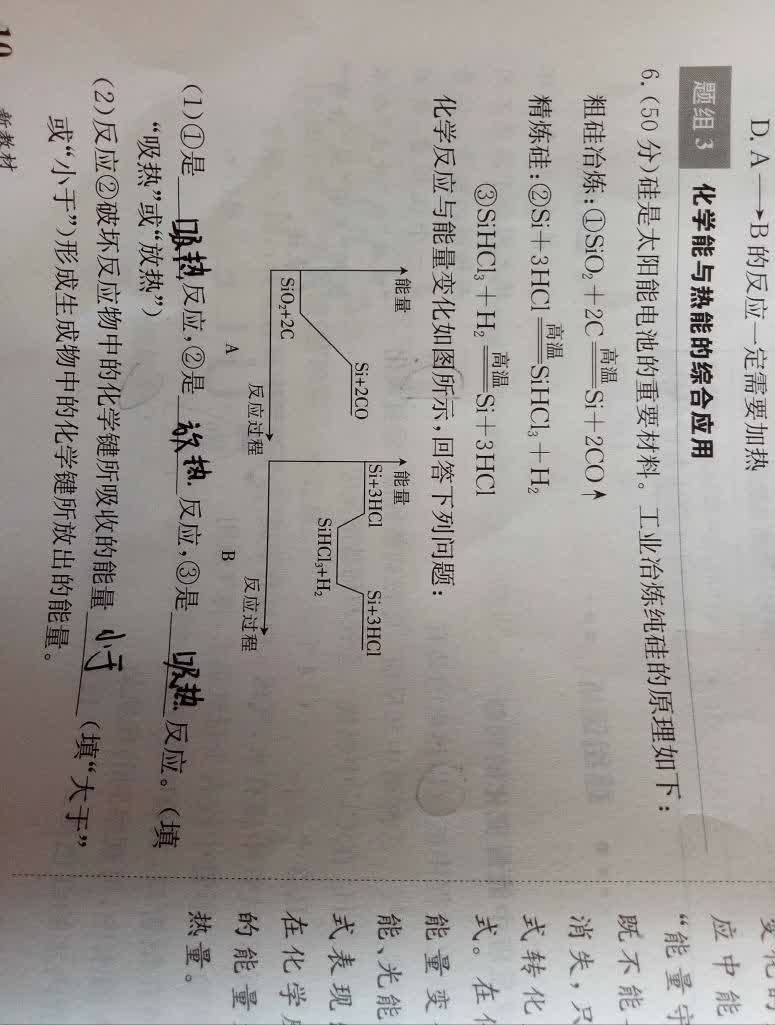 D. A→B的反应一定需要加热
题组3 化学能与热能的综合应用
6. (50分)硅是太阳能电池的重要材料。工业冶炼纯硅的原理如下：
粗硅冶炼：①SiO₂+2C=高温=Si+2CO↑
精炼硅：②Si+3HCl=高温=SiHCl₃+H₂
③SiHCl₃+H₂=高温=Si+3HCl
化学反应与能量变化如图所示，回答下列问题：
能量
Si+2CO
SiO₂+2C
反应过程
A
能量
Si+3HCl
Si+3HCl
SiHCl₃+H₂
反应过程
B
(1)①是 吸热 反应，②是 放热 反应，③是 吸热 反应。(填
“吸热”或“放热”)
(2)反应②破坏反应物中的化学键所吸收的能量 小于 (填“大于”
或“小于”)形成生成物中的化学键所放出的能量。
新教材
应中能
“能量守
既不能
消失，只
式转化
式。在
能量变
能、光能
式表现
在化学
的能量
热量。